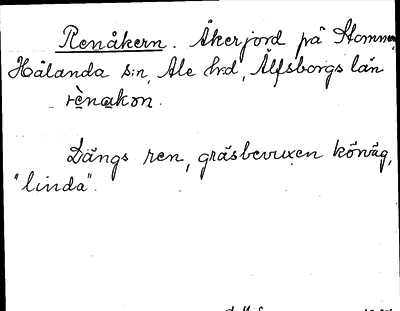 Renåkern. Åkerjord på Stommen,
Hålanda s:n, Ale hrd, Älfsborgs län
rènakon.
Längs ren, gräsbevuxen körväg,
"linda".